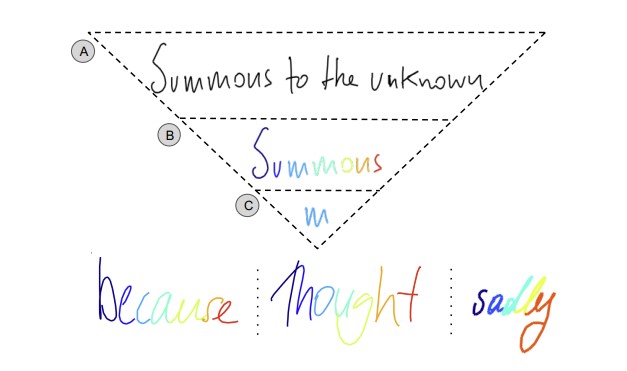 A
Summons to the unknown
B
Summons
C
m
because thought sadly